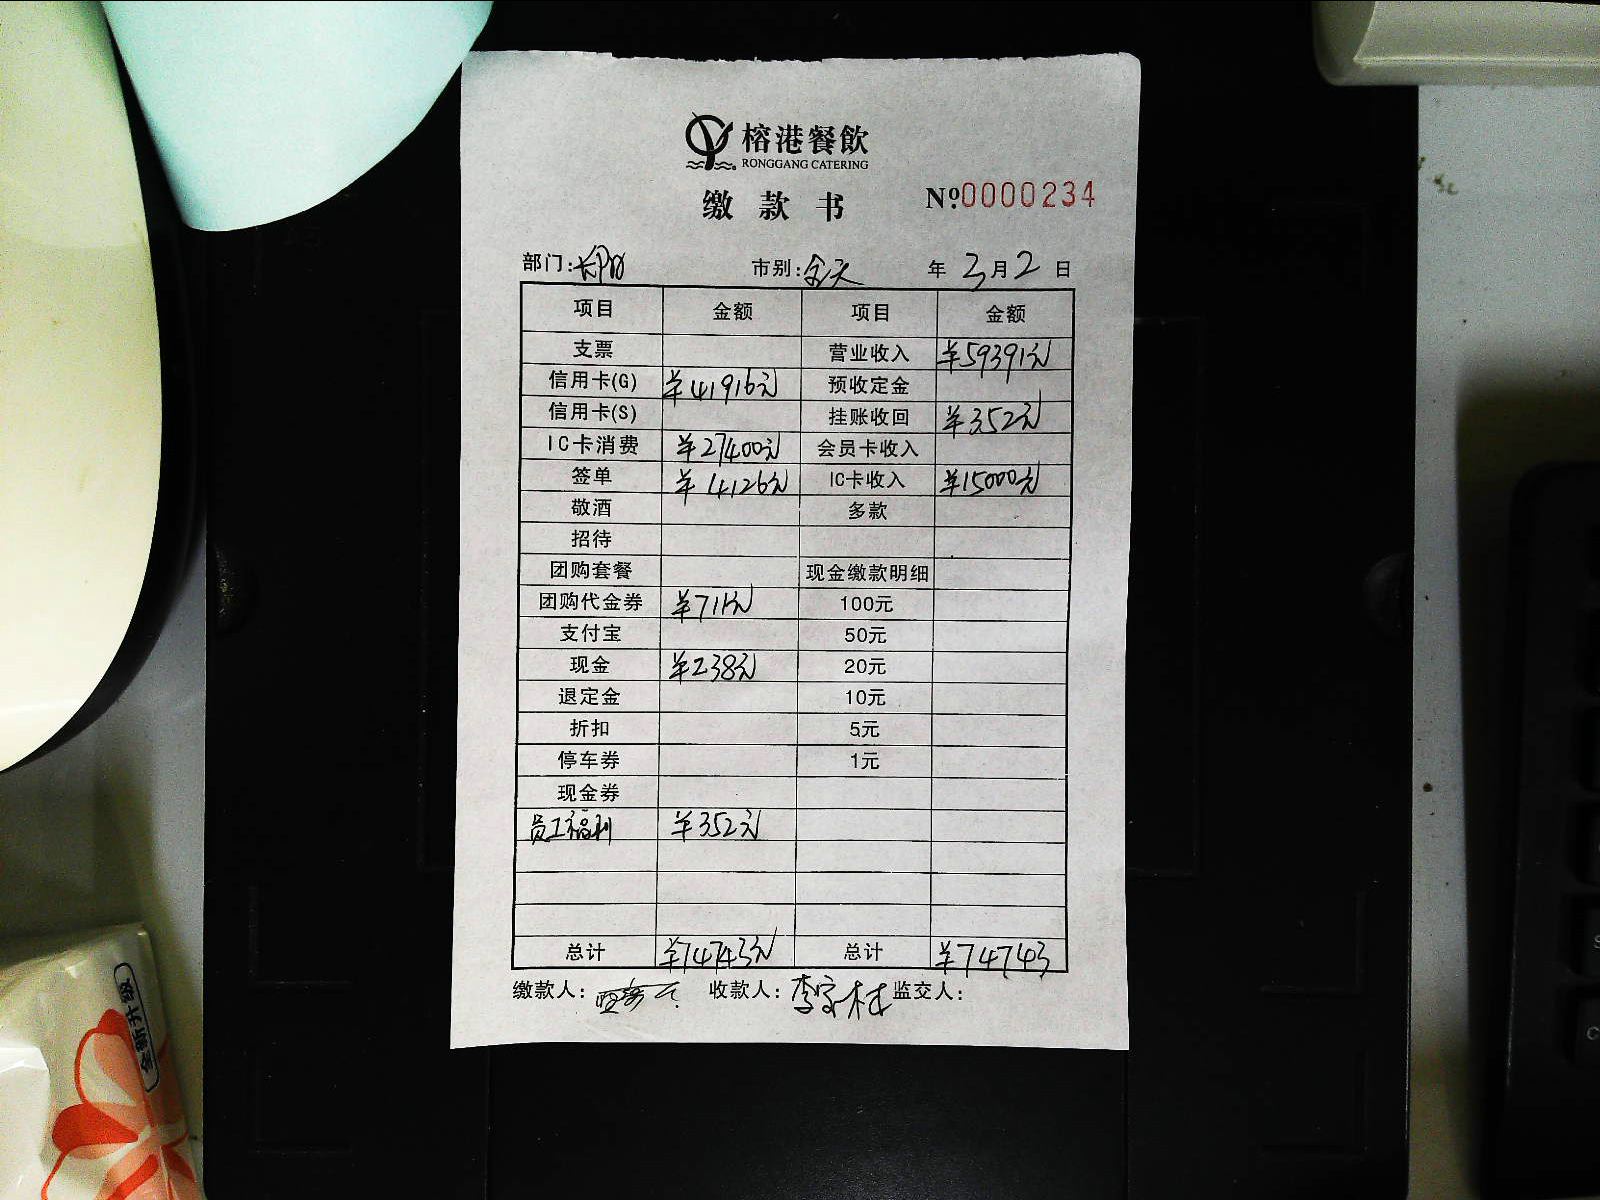 榕港餐飲
RONGGANG CATERING
缴款书 №0000234
部门: 市别:全天 年 3月2日
项目 金额 项目 金额
支票 营业收入 ¥59391元
信用卡(G) ¥41916元 预收定金
信用卡(S) 挂账收回 ¥352元
IC卡消费 ¥27400元 会员卡收入
签单 ¥4126元 IC卡收入 ¥15000元
敬酒 多款
招待
团购套餐 现金缴款明细
团购代金券 ¥711元 100元
支付宝 50元
现金 ¥238元 20元
退定金 10元
折扣 5元
停车券 1元
现金券
员工福利 ¥352元
总计 ¥74743元 总计 ¥74743
缴款人: 收款人: 监交人:
全新升级